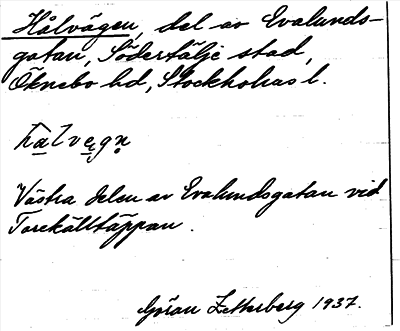 Hålvägen, del av Evalunds-
gatan, Södertälje stad,
Öknebo hd, Stockholms l.
halvegn
Västra delen av Evalundsgatan vid
Torekälltäppan.
Göran Zetterberg 1937.